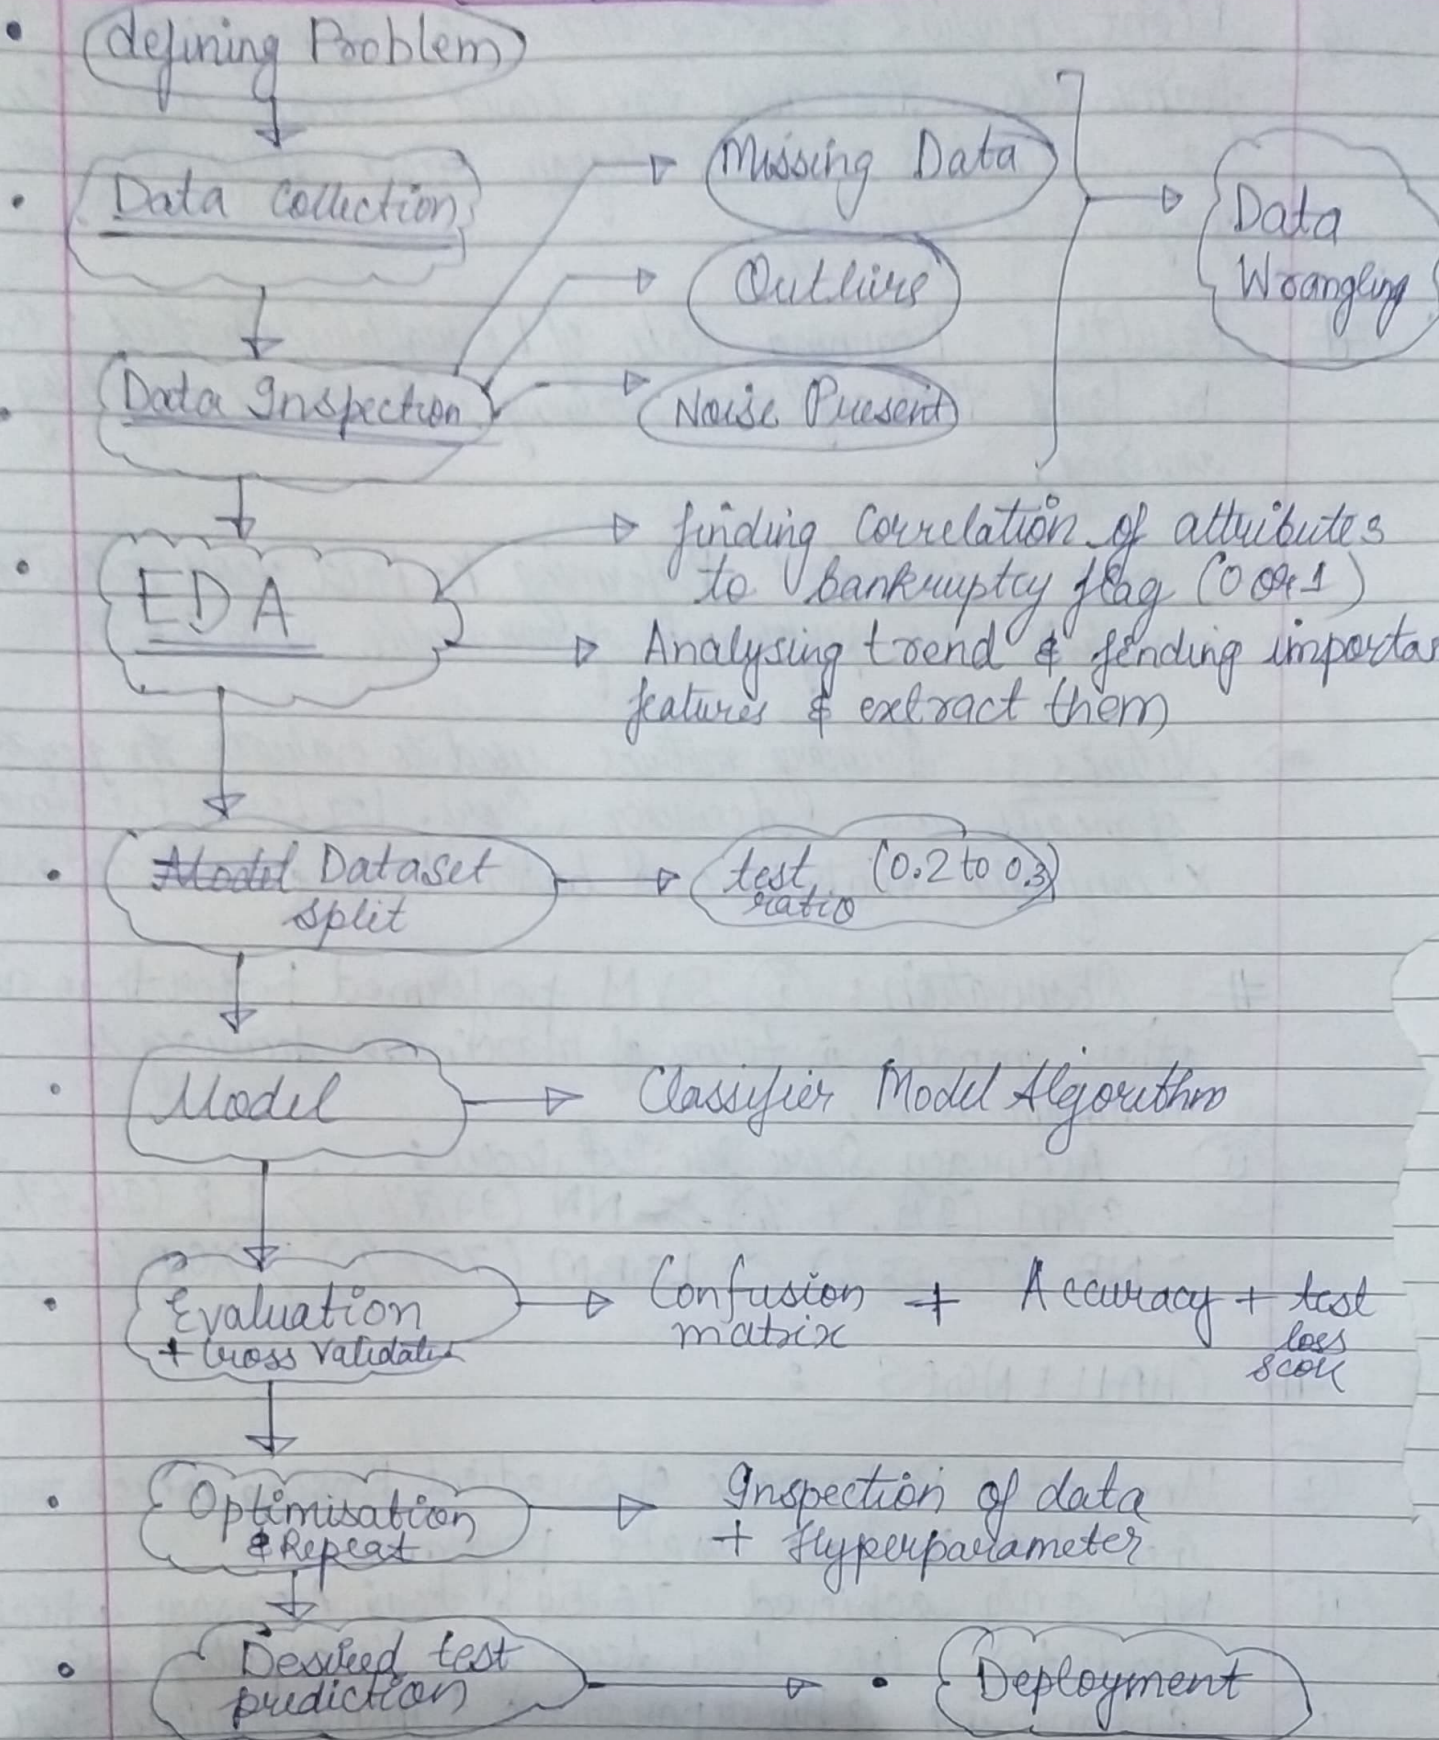 defining Problem
Data Collection
Missing Data
Data
Wrangling
Outliers
Data Inspection
Noise Present
EDA
finding Correlation of attributes
to bankruptcy flag (0 or 1)
Analysing trend & finding importa
features & extract them
Model Dataset
split
test (0.2 to 0.3)
ratio
Model
Classifier Model Algorithm
Evaluation
+ Cross Validatio
Confusion + Accuracy + test
matrix
loss
score
Optimisation
& Repeat
Inspection of data
+ Hyperparameter
Desired test
prediction
Deployment